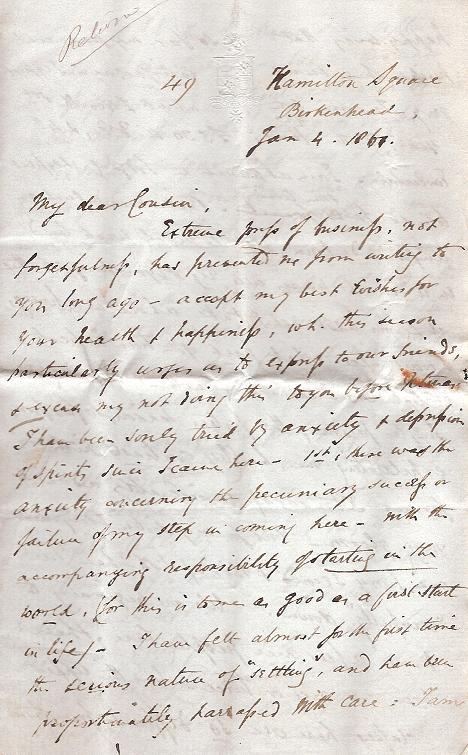 Return
49
Hamilton Square
Birkenhead,
Jan 4. 1861.
My dear Cousin,
Extreme press of business, not
forgetfulness, has prevented me from writing to
you long ago - accept my best wishes for
your health & happiness, wh. this season
particularly urges us to express to our friends,
& excuse my not doing this to you before
I have been sorely tried by anxiety & depression
of spirits since I came here - 1st, there was the
anxiety concerning the pecuniary success or
failure of my step in coming here - with the
accompanying responsibility of starting in the
world, (for this is to me as good as a first start
in life) - I have felt almost for the first time
the serious nature of "settling", and have been
proportionately harrassed with care : I am